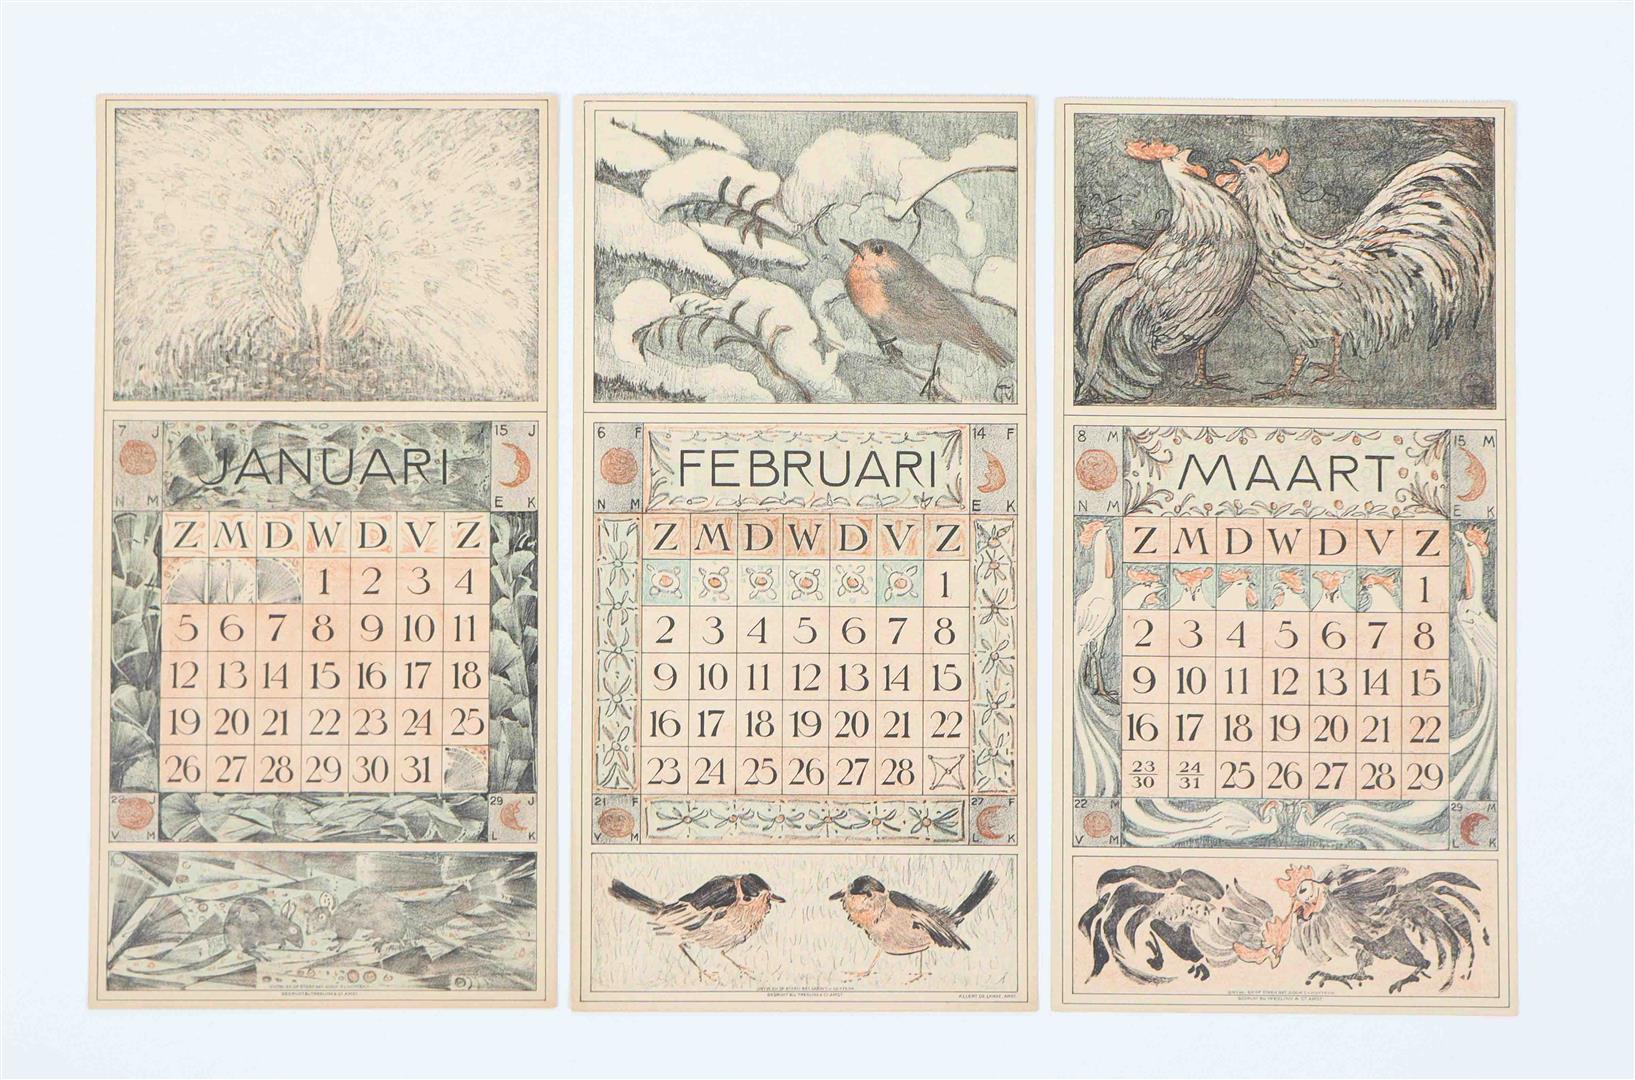 7 J
JANUARI
15 J
N M
E K
Z M D W D V Z
1 2 3 4
5 6 7 8 9 10 11
12 13 14 15 16 17 18
19 20 21 22 23 24 25
26 27 28 29 30 31
22 J
29 J
V M
L K
6 F
FEBRUARI
14 F
N M
E K
Z M D W D V Z
1
2 3 4 5 6 7 8
9 10 11 12 13 14 15
16 17 18 19 20 21 22
23 24 25 26 27 28
21 F
27 F
V M
L K
8 M
MAART
15 M
N M
E K
Z M D W D V Z
1
2 3 4 5 6 7 8
9 10 11 12 13 14 15
16 17 18 19 20 21 22
23/30 24/31 25 26 27 28 29
22 M
29 M
V M
L K